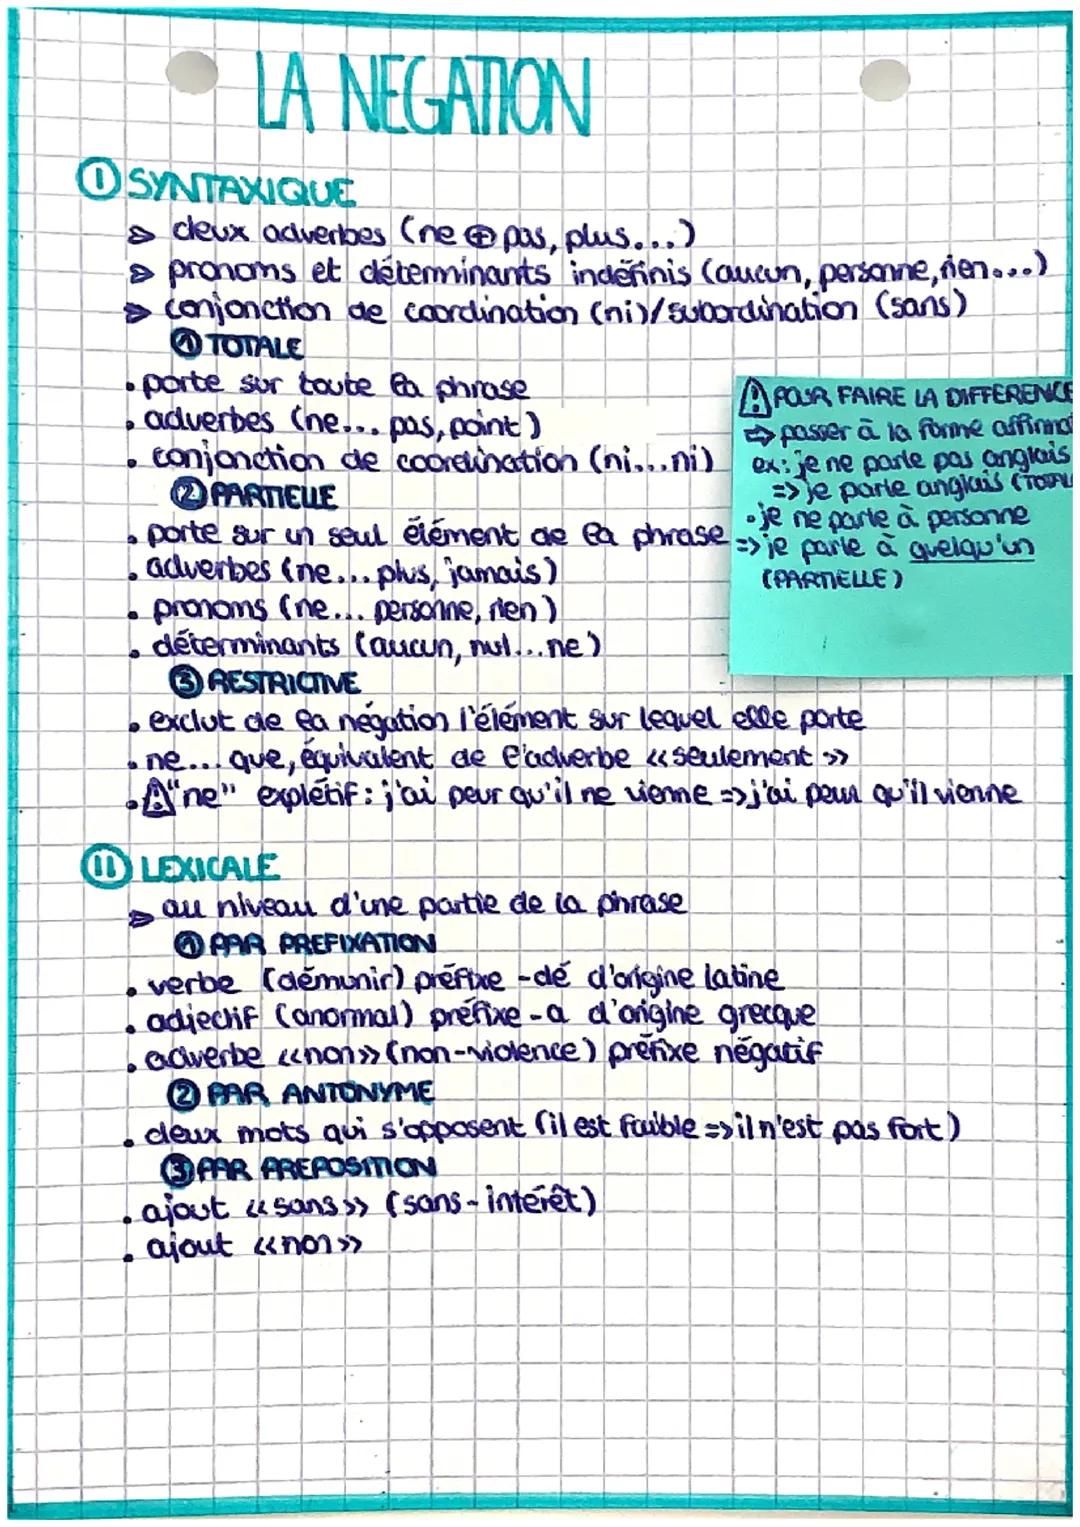 LA NEGATION
I SYNTAXIQUE
⇒ deux adverbes (ne ⊕ pas, plus...)
⇒ pronoms et déterminants indéfinis (aucun, personne, rien...)
⇒ conjonction de coordination (ni)/subordination (sans)
① TOTALE
• porte sur toute la phrase
• adverbes (ne... pas, point)
• conjonction de coordination (ni...ni)
② PARTIELLE
• porte sur un seul élément de la phrase
• adverbes (ne... plus, jamais)
• pronoms (ne... personne, rien)
• déterminants (aucun, nul...ne)
⚠ POUR FAIRE LA DIFFERENCE
⇒ passer à la forme affirmat
ex: je ne parle pas anglais
=> je parle anglais (TOTAL
• je ne parle à personne
=> je parle à quelqu'un
(PARTIELLE)
③ RESTRICTIVE
• exclut de la négation l'élément sur lequel elle porte
• ne... que, équivalent de l'adverbe «seulement»
• ⚠ "ne" explétif: j'ai peur qu'il ne vienne => j'ai peur qu'il vienne
II LEXICALE
⇒ au niveau d'une partie de la phrase
① PAR PREFIXATION
• verbe (démunir) préfixe -dé d'origine latine
• adjectif (anormal) préfixe -a d'origine grecque
• adverbe «non» (non-violence) préfixe négatif
② PAR ANTONYME
• deux mots qui s'opposent (il est faible => il n'est pas fort)
③ PAR PREPOSITION
• ajout «sans» (sans-intérêt)
• ajout «non»